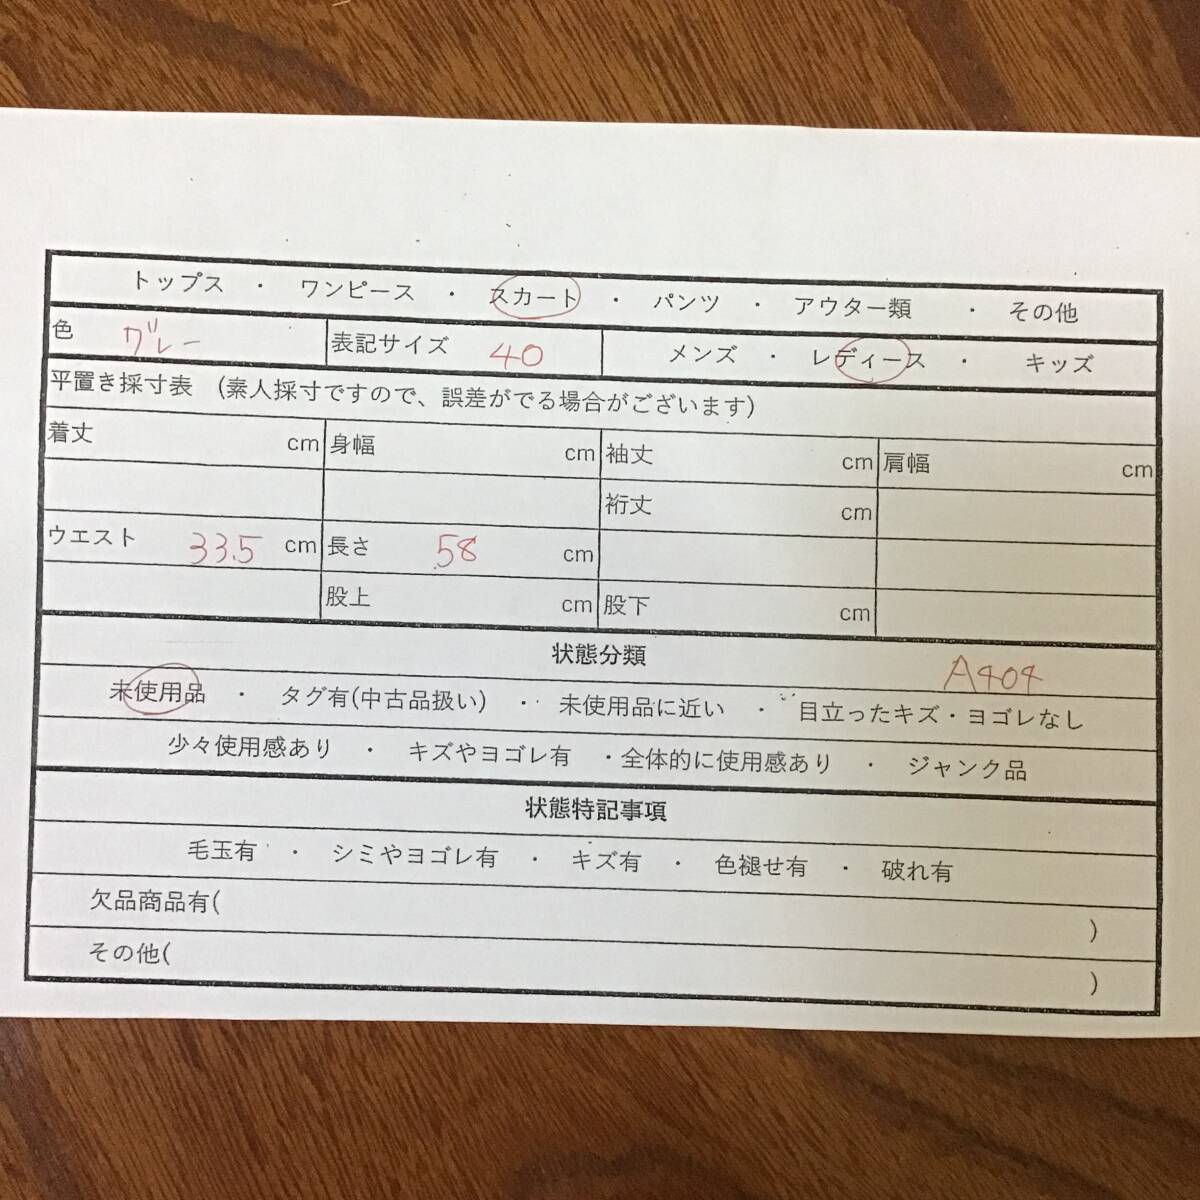 トップス ・ ワンピース ・ スカート ・ パンツ ・ アウター類 ・ その他
色 グレー 表記サイズ 40 メンズ ・ レディース ・ キッズ
平置き採寸表 (素人採寸ですので、誤差がでる場合がございます)
着丈 cm 身幅 cm 袖丈 cm 肩幅 cm
裄丈 cm
ウエスト 33.5 cm 長さ 58 cm
股上 cm 股下 cm
状態分類 A404
未使用品 ・ タグ有(中古品扱い) ・ 未使用品に近い ・ 目立ったキズ・ヨゴレなし
少々使用感あり ・ キズやヨゴレ有 ・全体的に使用感あり ・ ジャンク品
状態特記事項
毛玉有 ・ シミやヨゴレ有 ・ キズ有 ・ 色褪せ有 ・ 破れ有
欠品商品有( )
その他( )